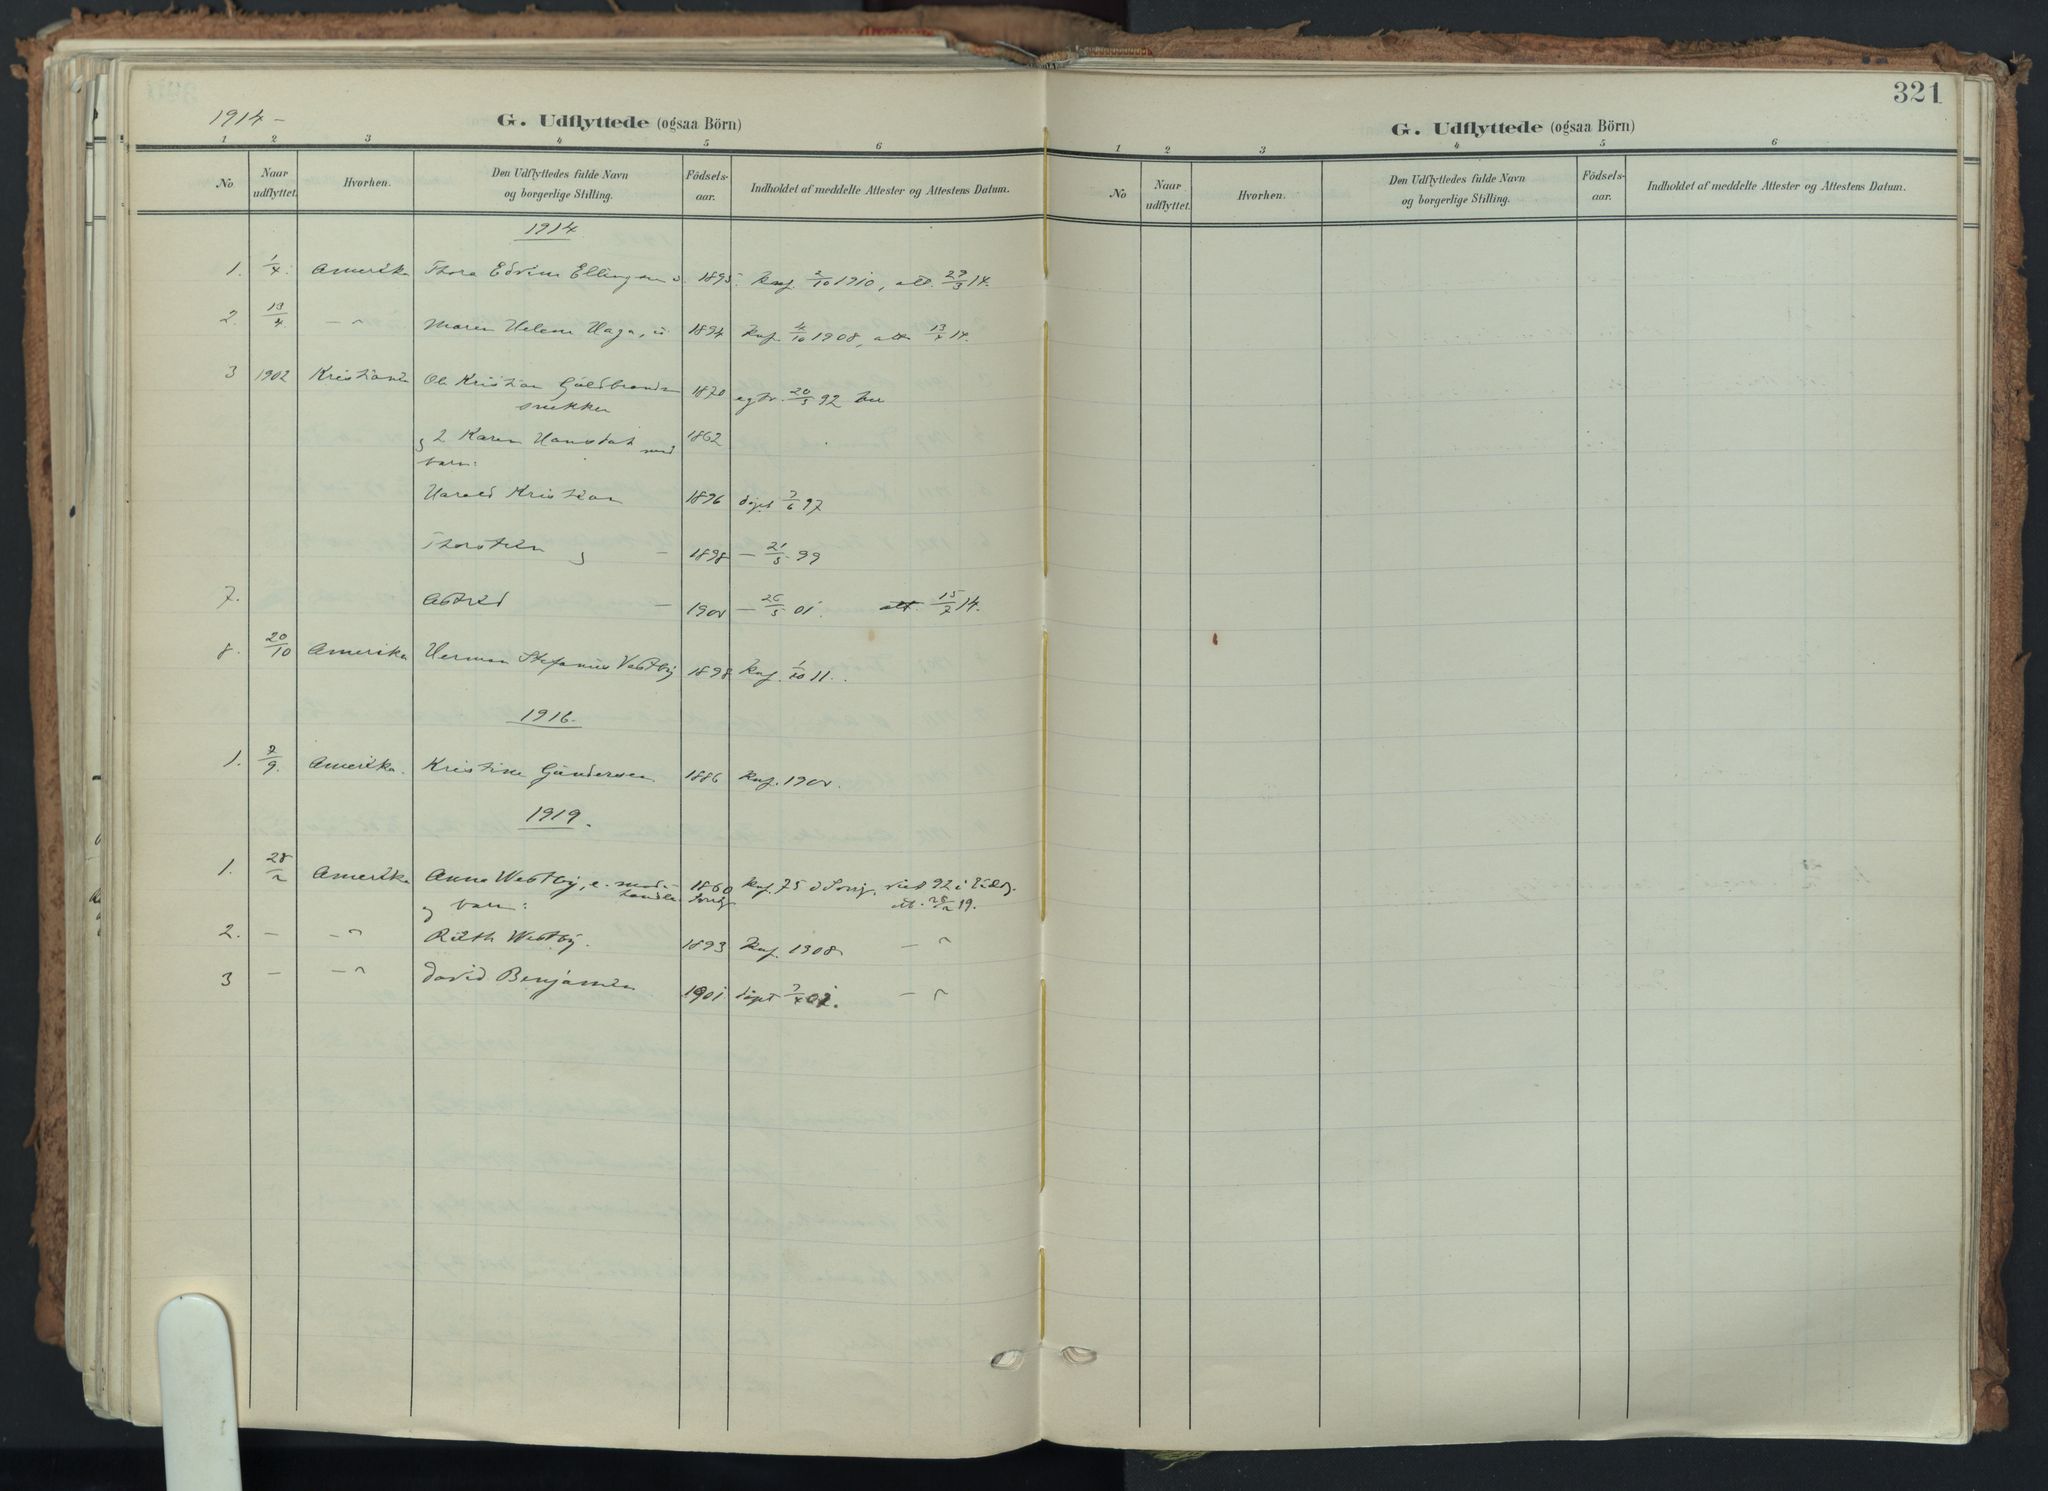 321
1914 –
G. Udflyttede (ogsaa Börn)
1 2 3 4 5 6
No Naar udflyttet. Hvorhen. Den Udflyttedes fulde Navn og borgerlige Stilling. Födsels-aar. Indholdet af meddelte Attester og Attestens Datum.
1914
1. 1/4. Amerika Thora Edvine Ellingsen 1895. Konf. 2/10 1910, att. 29/3 14.
2. 13/4 – " Maren Helene Haga, 1894 Konf. 4/10 1908, att. 13/4 14.
3 1902 Kristiania Ole Kristian Guldbrands 1870 20/5 92
snekker
og 2 Karen Hansdat med 1862
barn:
Harald Kristian 1896 døpt 7/6 97
Thorstein og – 1898 – 21/5 99
7. Astrid – 1900 – 26/5 01. att. 15/7 14.
8. 20/10 Amerika Herman Stefanus Vestby 1898 Konf. 1/10 11.
1916.
1. 7/9. Amerika. Kristine Gundersen 1886 Konf. 1900.
1919.
1. 28/2 Amerika Anna Westby, 1860 Konf. 75 viet 92 i
og barn: att. 28/2 19.
2. – – " Ruth Westby. 1893 Konf. 1908 – "
3 – – " David Benjamin 1901 døpt 7/4 02. – "
G. Udflyttede (ogsaa Börn)
1 2 3 4 5 6
No Naar udflyttet. Hvorhen. Den Udflyttedes fulde Navn og borgerlige Stilling. Födsels-aar. Indholdet af meddelte Attester og Attestens Datum.